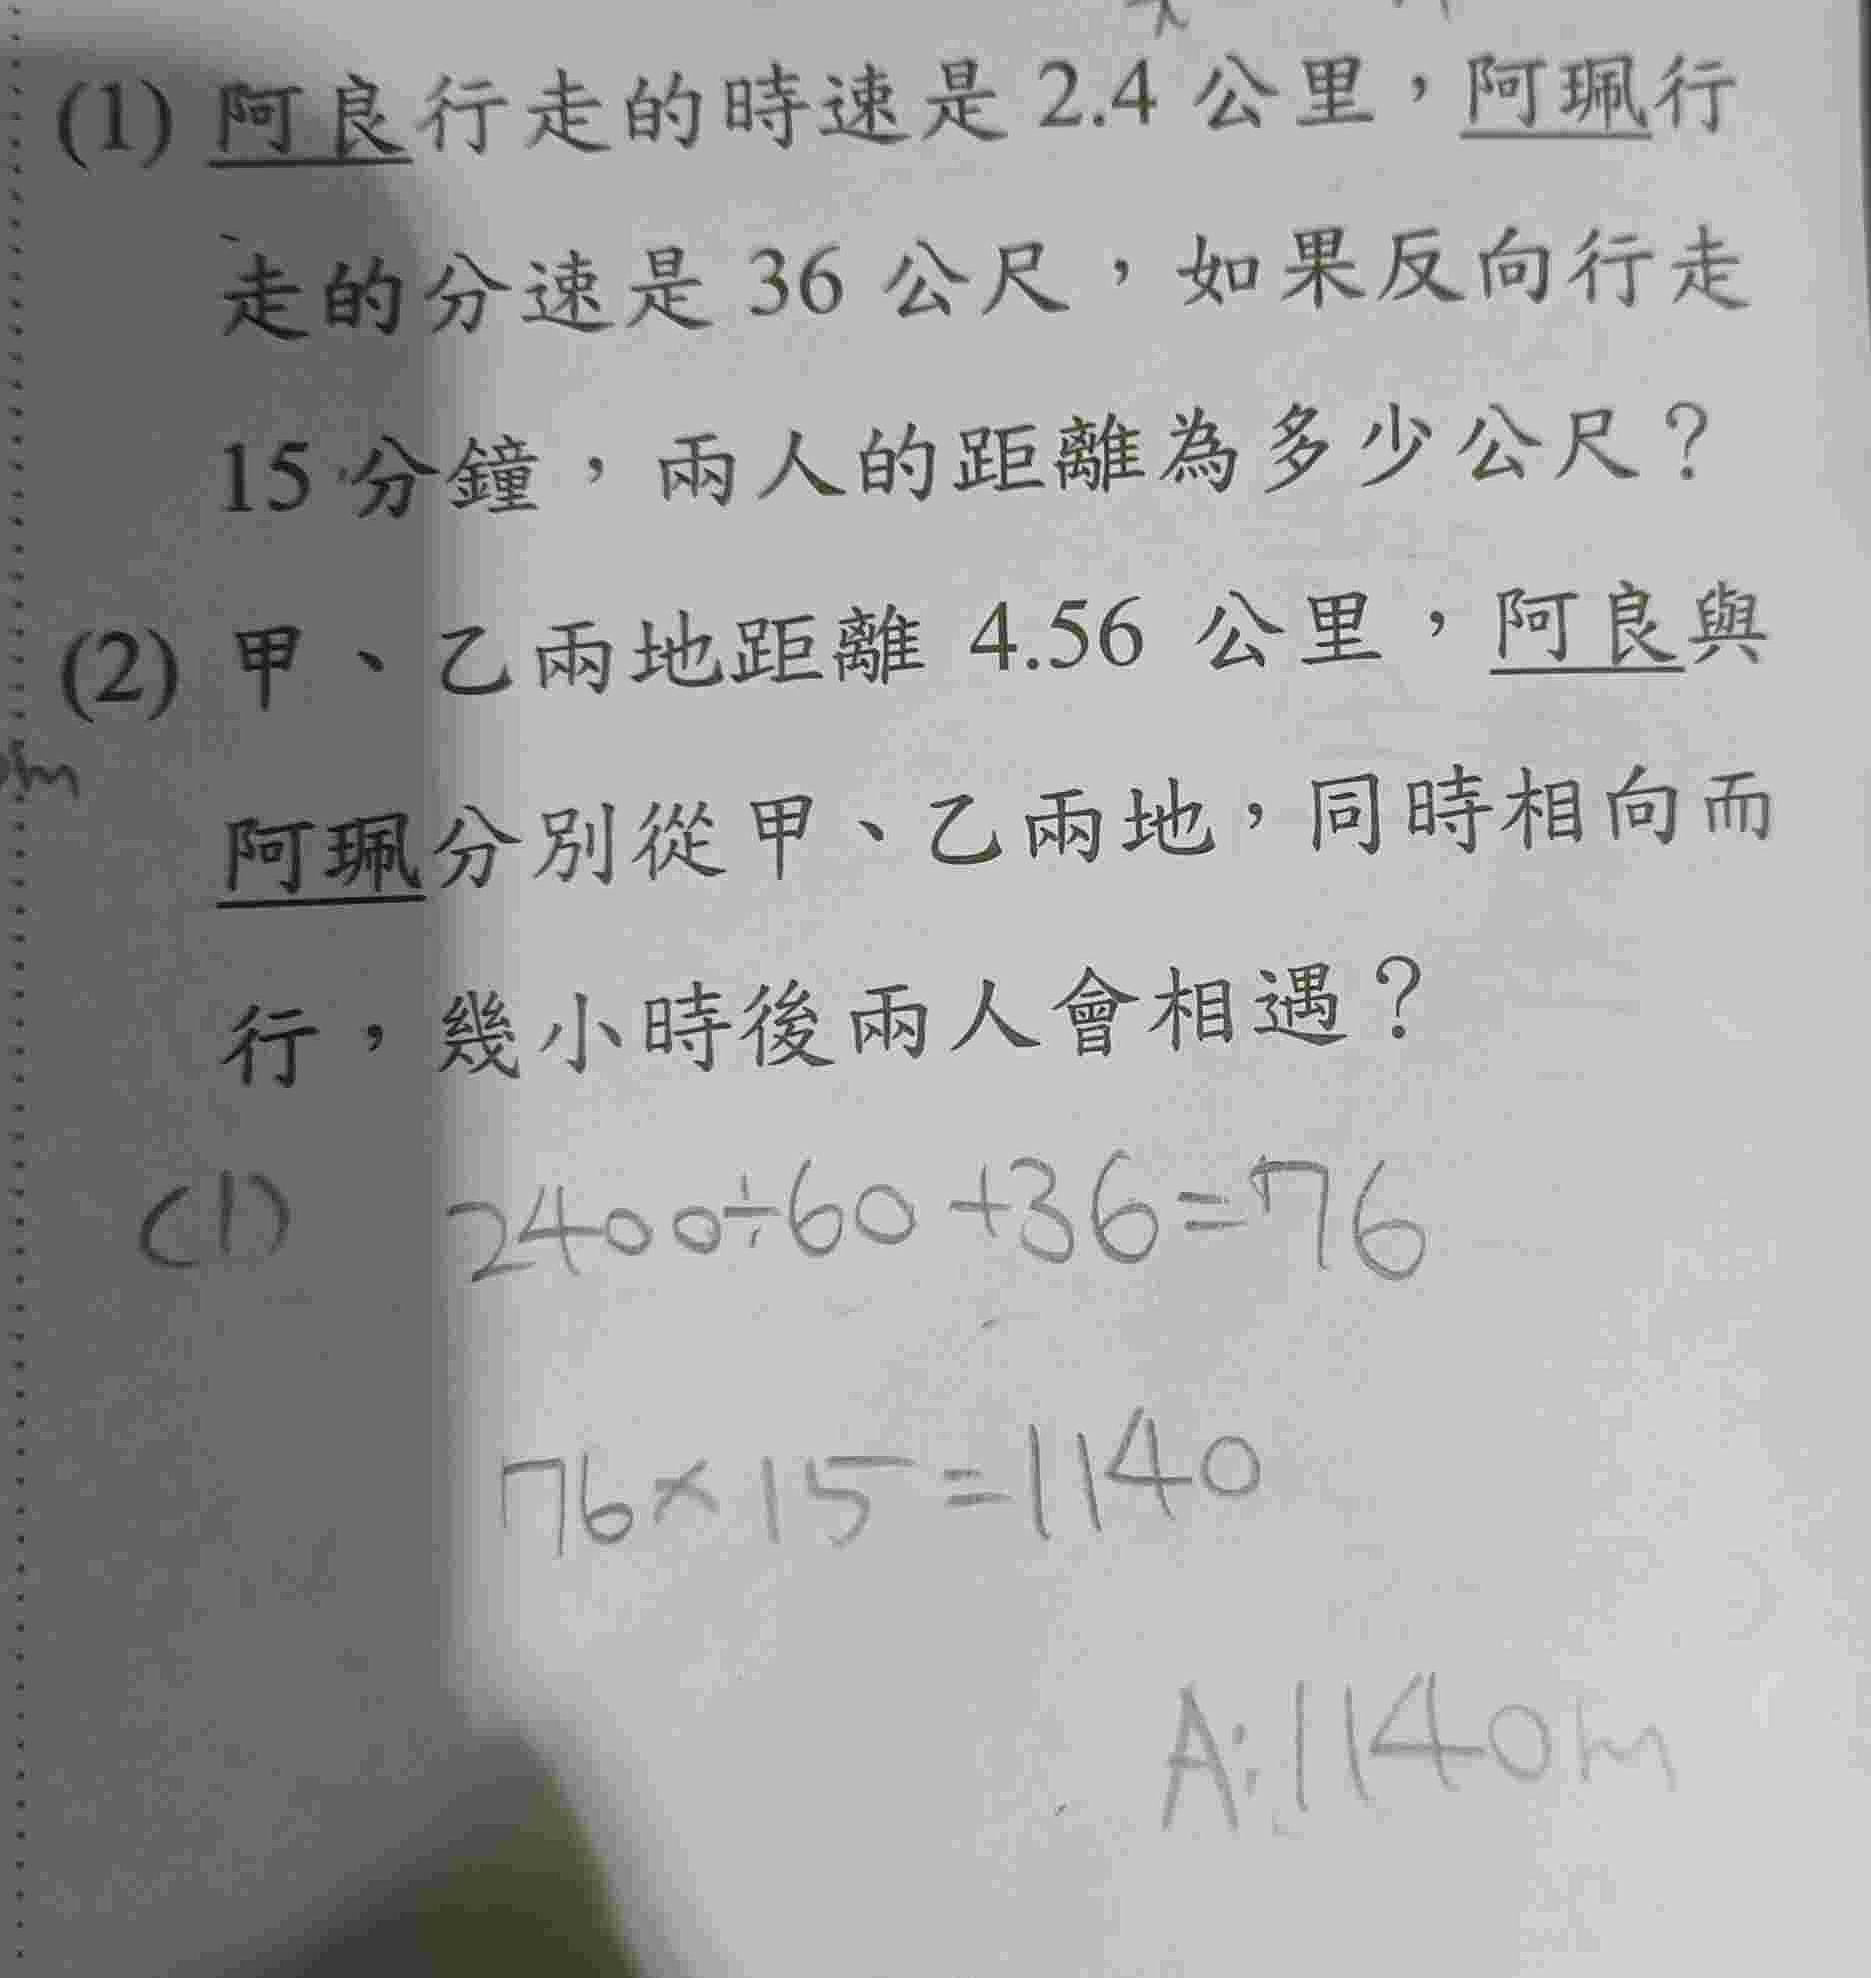 (1) 阿良行走的時速是 2.4 公里，阿珮行
走的分速是 36 公尺，如果反向行走
15 分鐘，兩人的距離為多少公尺？
(2) 甲、乙兩地距離 4.56 公里，阿良與
阿珮分別從甲、乙兩地，同時相向而
行，幾小時後兩人會相遇？
(1) 2400÷60+36=76
76×15=1140
A:1140m